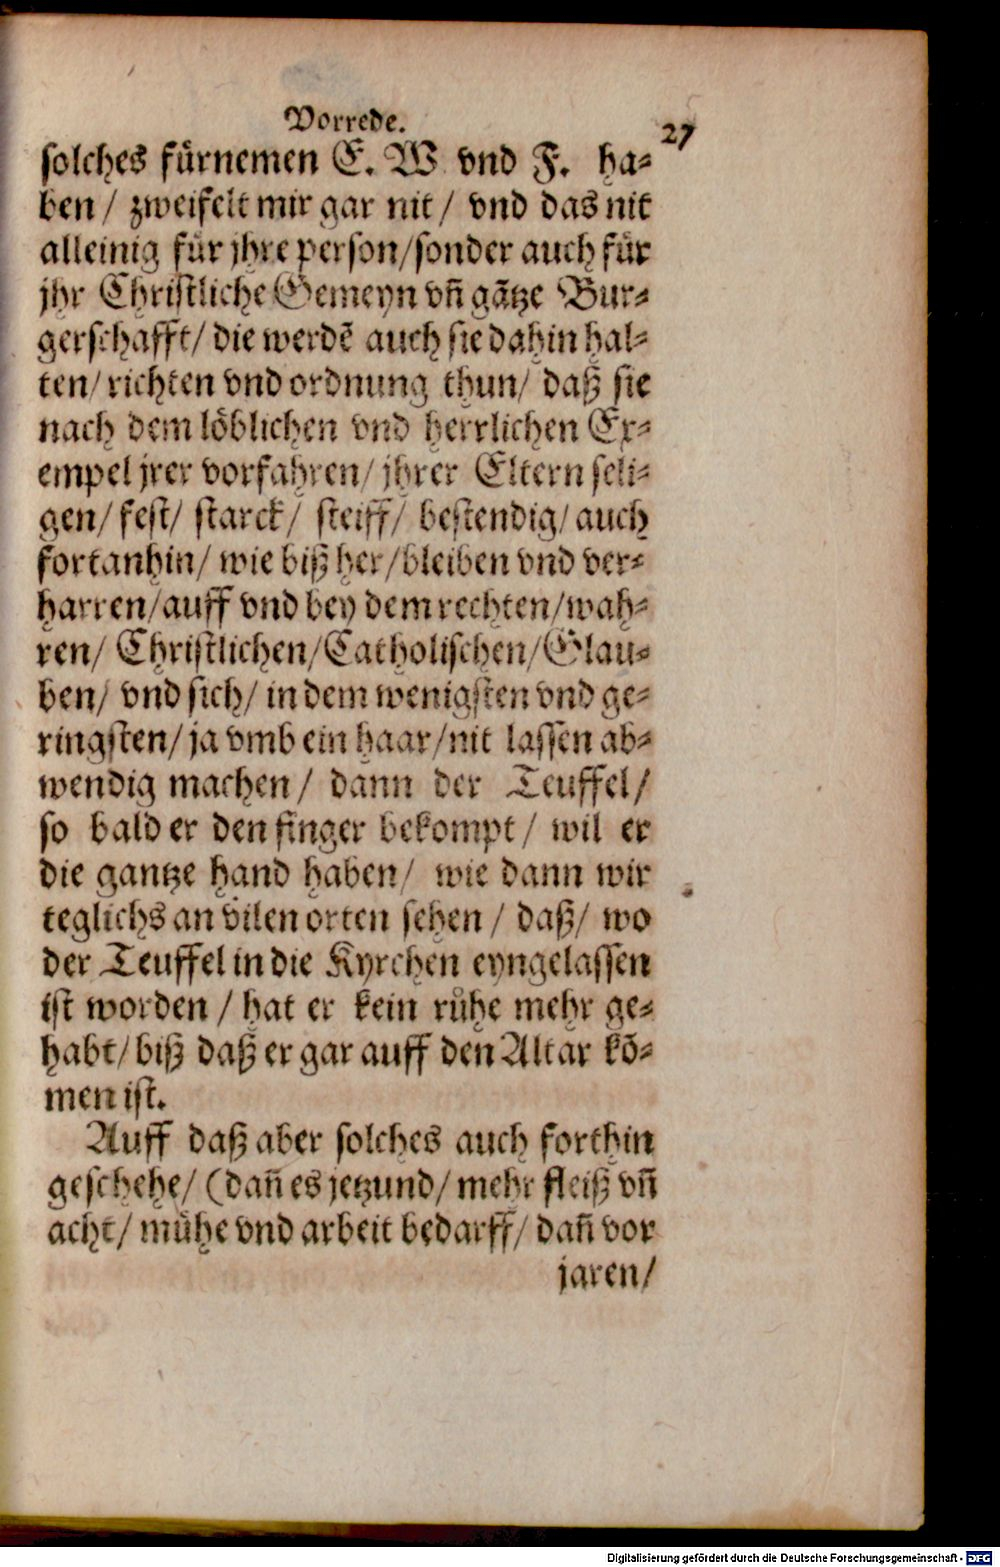 Vorrede.
27
solches fürnemen E. W vnd F. ha-
ben / zweifelt mir gar nit / vnd das nit
alleinig für jhre person/sonder auch für
jhr Christliche Gemeyn vñ gãtze Bur-
gerschafft/ die werdẽ auch sie dahin hal-
ten/ richten vnd ordnung thun/ daß sie
nach dem löblichen vnd herrlichen Ex-
empel jrer vorfahren/ jhrer Eltern seli-
gen/ fest/ starck/ steiff/ bestendig/ auch
fortanhin/ wie biß her/bleiben vnd ver-
harren/auff vnd bey dem rechten/wah-
ren/ Christlichen/Catholischen/Glau-
ben/ vnd sich/ in dem wenigsten vnd ge-
ringsten/ ja vmb ein haar/nit lassen ab-
wendig machen/ dann der Teuffel/
so bald er den finger bekompt/ wil er
die gantze hand haben/ wie dann wir
teglichs an vilen orten sehen / daß/ wo
der Teuffel in die Kyrchen eyngelassen
ist worden / hat er kein růhe mehr ge-
habt/ biß daß er gar auff den Altar kõ-
men ist.
Auff daß aber solches auch forthin
geschehe/ (dañ es jetzund/ mehr fleiß vñ
acht/ mühe vnd arbeit bedarff/ dañ vor
jaren/
Digitalisierung gefördert durch die Deutsche Forschungsgemeinschaft - DFG